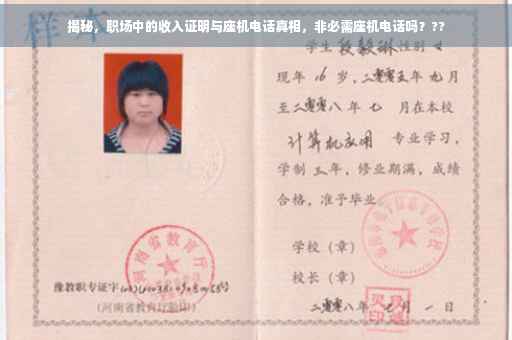 揭秘，职场中的收入证明与座机电话真相，非必需座机电话吗？??
样本
学生段毅琳性别女
现年16岁，二零零五年九月
至二零零八年七月在本校
计算机应用 专业学习，
学制三年，修业期满，成绩
合格，准予毕业
学校（章）
校长（章）
二零零八年七月一日
河南省教育厅
豫教职专证字
（河南省教育厅验印）